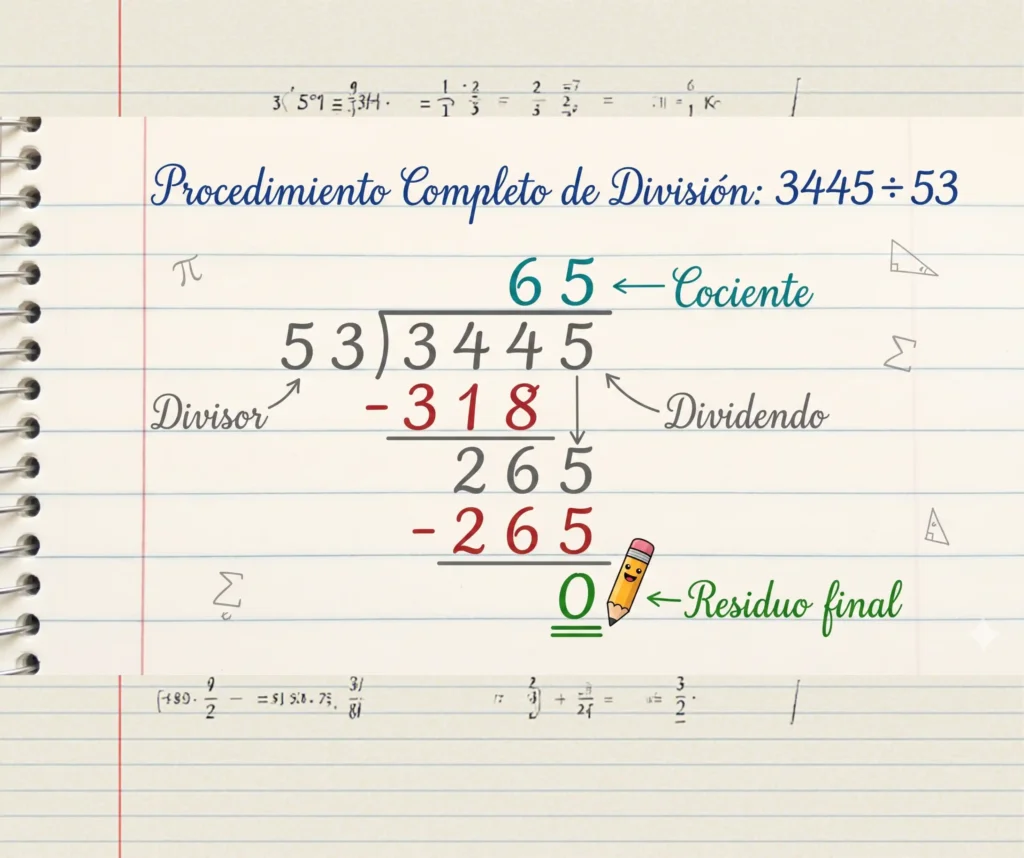 Procedimiento Completo de División: 3445 ÷ 53
π
6 5 ← Cociente
5 3 ) 3 4 4 5
Σ
Divisor
- 3 1 8
Dividendo
2 6 5
- 2 6 5
Σ
0 ← Residuo final